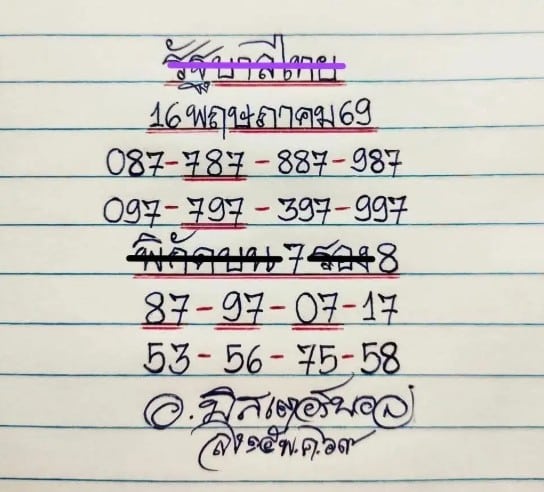 รัฐบาลไทย
16 พฤษภาคม 69
087-787-887-987
097-797-397-997
พิกัดบน 7 รอง 8
87-97-07-17
53-56-75-58
อ. มิสเตอร์บอล
๑๕ พ.ค. ๖๙